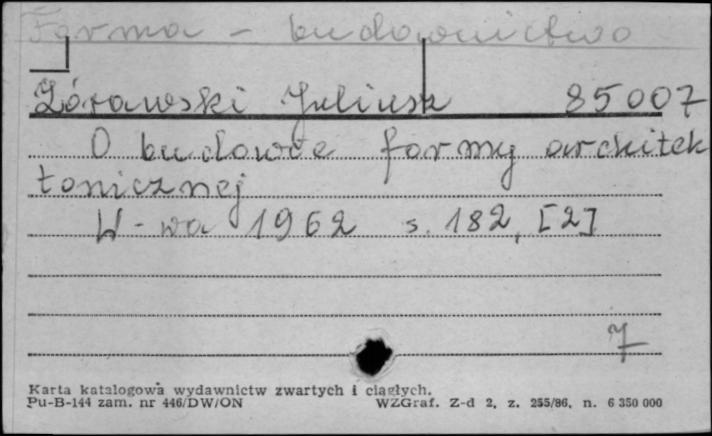 Forma - budownictwo
Żórawski Juliusz 85007
O budowie formy architek
tonicznej
W-wa 1962 s. 182, [2]
7
Karta katalogowa wydawnictw zwartych i ciągłych.
Pu-B-144 zam. nr 446/DW/ON WZGraf. Z-d 2, z. 255/86, n. 6 350 000